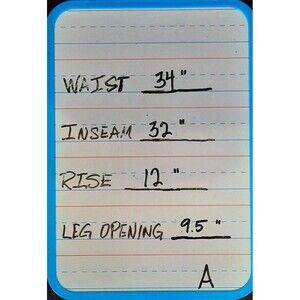 WAIST 34"
INSEAM 32"
RISE 12"
LEG OPENING 9.5"
A